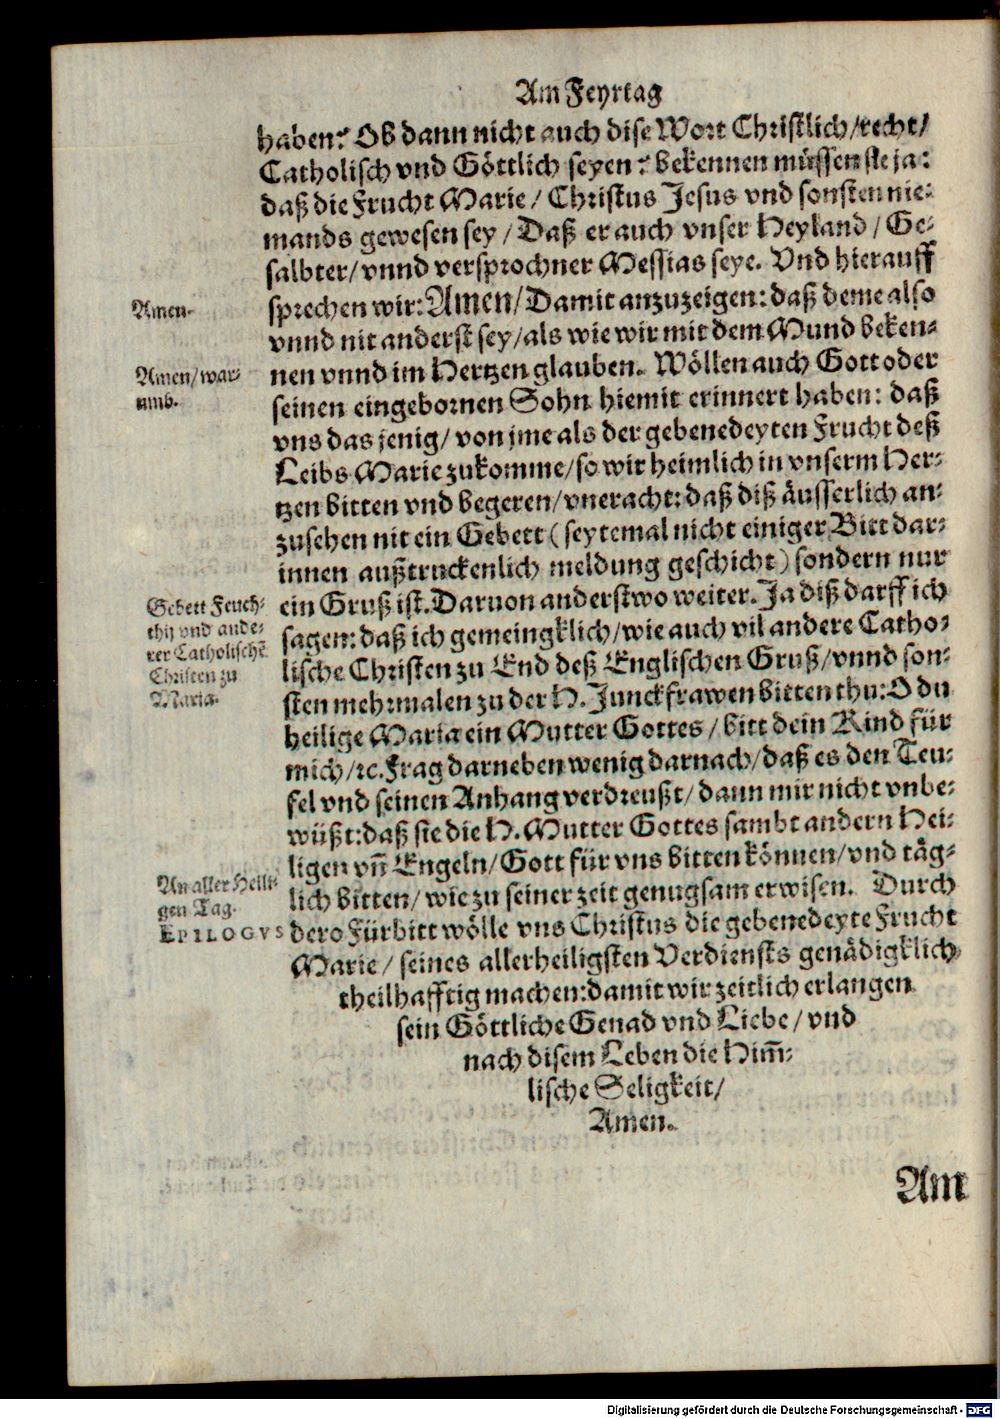 Am Feyrtag
haben? Ob dann nicht auch dise Wort Christlich/recht/
Catholisch vnd Göttlich seyen? bekennen müssen sie ja:
daß die Frucht Marie/ Christus Jesus vnd sonsten nie-
mands gewesen sey/ Daß er auch vnser Heyland/ Ge-
salbter/ vnnd versprochner Messias seye. Vnd hierauff
Amen.
sprechen wir: Amen/ Damit anzuzeigen: daß deme also
vnnd nit anderst sey/ als wie wir mit dem Mund beken-
Amen/ war-
umb.
nen vnnd im Hertzen glauben. Wöllen auch Gott oder
seinen eingebornen Sohn hiemit erinnert haben: daß
vns das jenig/ von jme als der gebenedeyten Frucht deß
Leibs Marie zukomme/ so wir heimlich in vnserm Her-
tzen bitten vnd begeren/ vneracht: daß diß äusserlich an-
zusehen nit ein Gebett (seytemal nicht einiger Bitt dar-
innen außtruckenlich meldung geschicht) sondern nur
Gebett Feuch-
thij vnd ande-
rer Catholischē
Christen zu
Maria.
ein Gruß ist. Daruon anderstwo weiter. Ja diß darff ich
sagen: daß ich gemeingklich/ wie auch vil andere Catho-
lische Christen zu End deß Englischen Gruß/ vnnd son-
sten mehrmalen zu der H. Junckfrawen bitten thu: O du
heilige Maria ein Mutter Gottes/ bitt dein Kind für
mich/ ꝛc. Frag darneben wenig darnach/ daß es den Teu-
fel vnd seinen Anhang verdreußt/ dann mir nicht vnbe-
wüßt: daß sie die H. Mutter Gottes sambt andern Hei-
ligen vñ Engeln/ Gott für vns bitten können/ vnd täg-
An aller Heili-
gen Tag.
lich bitten/ wie zu seiner zeit genugsam erwisen. Durch
EPILOGVS
dero Fürbitt wölle vns Christus die gebenedeyte Frucht
Marie/ seines allerheiligsten Verdiensts genädigklich
theilhafftig machen: damit wir zeitlich erlangen
sein Göttliche Genad vnd Liebe/ vnd
nach disem Leben die Him̄-
lische Seligkeit/
Amen.
Am
Digitalisierung gefördert durch die Deutsche Forschungsgemeinschaft - DFG